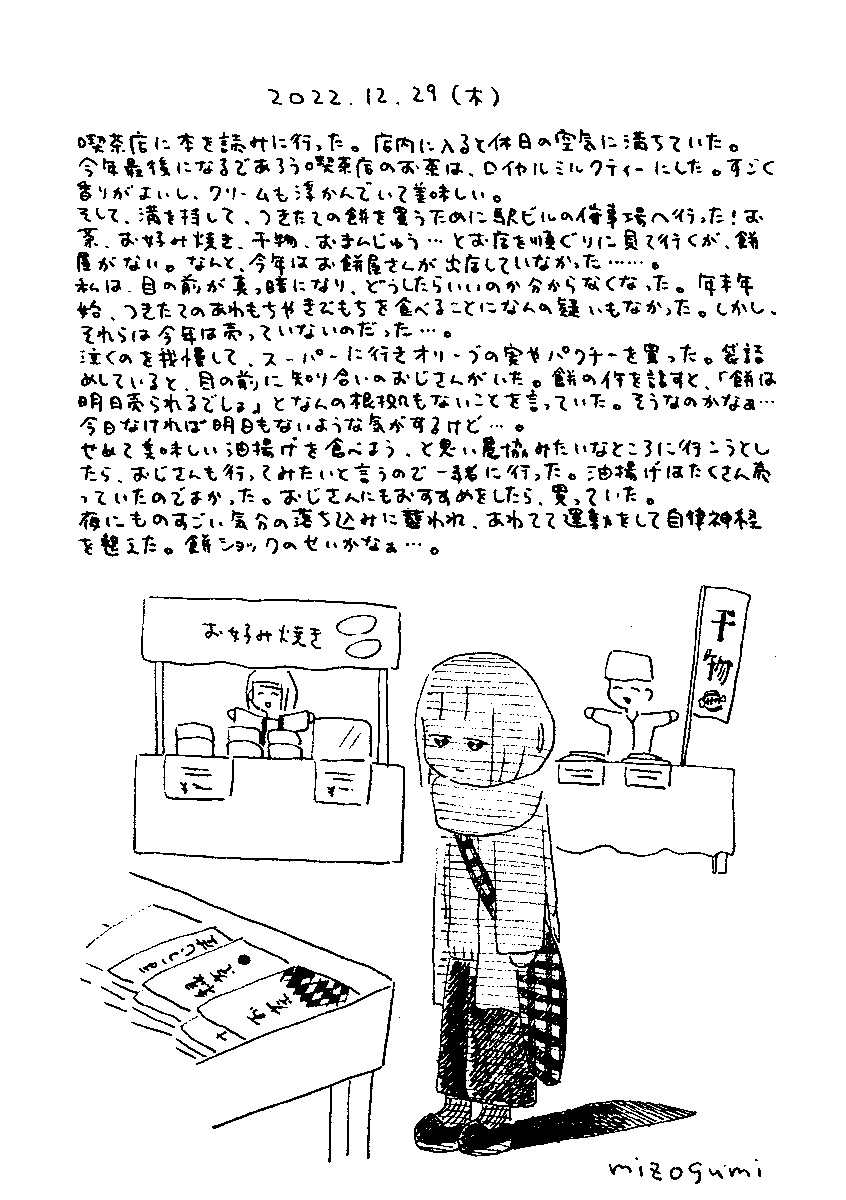 2022.12.29(木)
喫茶店に本を読みに行った。店内に入ると休日の空気に満ちていた。
今年最後になるであろう喫茶店のお茶は、ロイヤルミルクティーにした。すごく
香りがよいし、クリームも浮かんでいて美味しい。
そして、満を持して、つきたての餅を買うために駅ビルの催事場へ行った!お
茶、お好み焼き、干物、おまんじゅう…とお店を順ぐりに見て行くが、餅
屋がない。なんと、今年はお餅屋さんが出店していなかった……。
私は、目の前が真っ暗になり、どうしたらいいのか分からなくなった。年末年
始、つきたてのあわもちやきびもちを食べることになんの疑いもなかった。しかし、
それらは今年は売っていないのだった…。
泣くのを我慢して、スーパーに行きオリーブの実やパクチーを買った。袋詰
めしていると、目の前に知り合いのおじさんがいた。餅の件を話すと、「餅は
明日売られるでしょ」となんの根拠もないことを言っていた。そうなのかなぁ…
今日なければ明日もないような気がするけど…。
せめて美味しい油揚げを食べよう、と思い農協みたいなところに行こうとし
たら、おじさんも行ってみたいと言うので一緒に行った。油揚げはたくさん売
っていたのでよかった。おじさんにもおすすめをしたら、買っていた。
夜にものすごい気分の落ち込みに襲われ、あわてて運動をして自律神経
を整えた。餅ショックのせいかなぁ…。
お好み焼き
干物
¥
¥
mizogumi